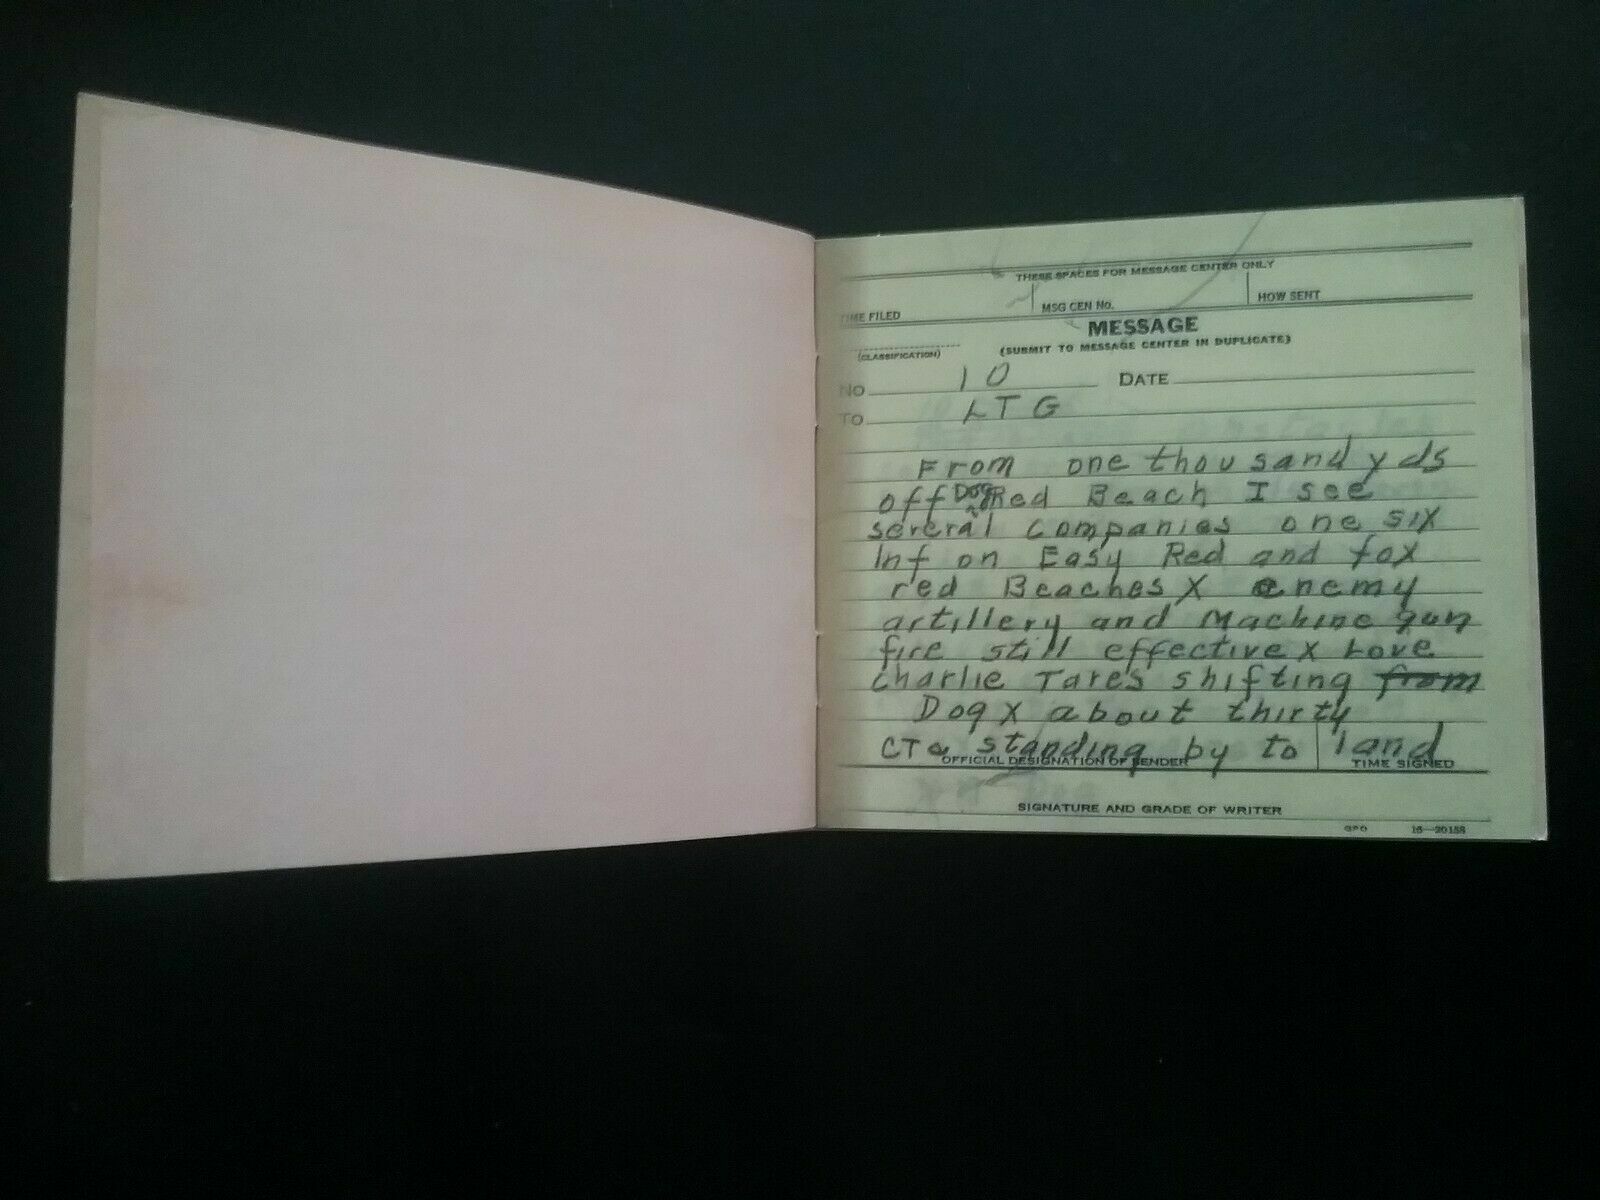 THESE SPACES FOR MESSAGE CENTER ONLY
TIME FILED MSG CEN No. HOW SENT
MESSAGE
(SUBMIT TO MESSAGE CENTER IN DUPLICATE)
(CLASSIFICATION)
No 10 DATE
TO LTG
From one thousand yds
off Dog Red Beach I see
several Companies one six
Inf on Easy Red and fox
red Beaches X enemy
artillery and Machine gun
fire still effective X Love
Charlie Tares shifting from
Dog X about thirty
standing by to land
OFFICIAL DESIGNATION OF SENDER TIME SIGNED
SIGNATURE AND GRADE OF WRITER
GPO 16—20158